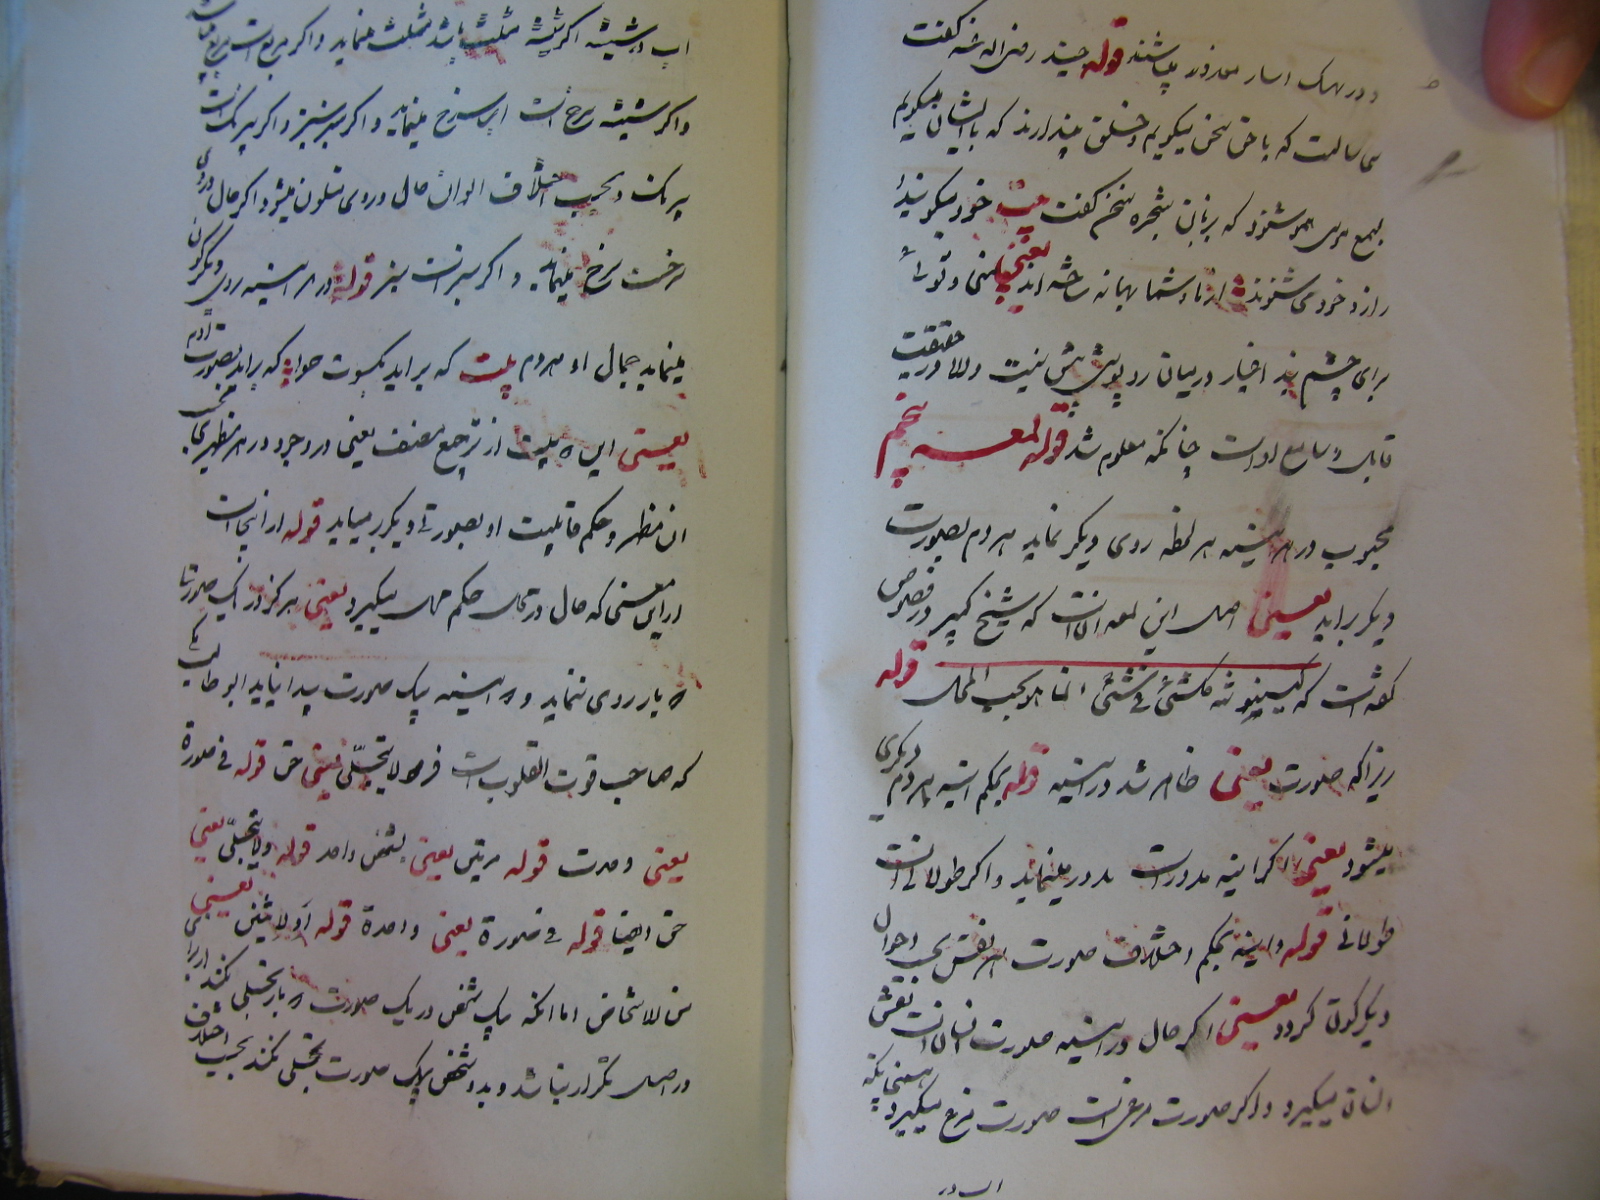 و در بهمک اسار معذور میباشند قوله جنید رضی اله عنه کفت
سی سالست که با حق سخن میکویم و خلق پندارند که با ایشان میکویم
بسمع موسی همو شنود که بزبان شجره سخن کفت بیت خود میکوید
راز و خود می شنود از ما و شما بهانه ساخته اند یعنی منی و تویی
برای چشم بند اغیار در میان رو پوشی بیش نیست والا در حقیقت
قابل و سامع اوست چنانکه معلوم شد قوله لمعه پنجم
محبوب در هر آینه هر لحظه روی دیکر نماید هر دم بصورت
دیکر براید یعنی اصل این لمعه انست که شیخ کبیر در فصوص
کفته است که کینونته کلشئ فی شئ انما هو بحسب المحل قوله
زیراکه صورت یعنی ظاهر شد در آینه قوله بحکم آینه هر دم دیکری
میشود یعنی اکر آینه مدور است مدور مینماید و اکر طولانی است
طولانی قوله و آینه بحکم اختلاف صورت از نفس بحسب احوال
دیکرکون کردد یعنی اکر حال در آینه صورت انسان است نقش
انسان میکیرد و اکر صورت مرغ است صورت مرغ میکیرد همچنانکه
اب در
اب در شیشه اکر شیشه مثلث باشد مثلث مینماید و اکر مربع است مربع
و اکر شیشه سرخ است اب سرخ مینماید و اکر سبز سبز و اکر بیرنک است
بیرنک و بحسب اختلاف الوان حال در وی متلون میشود اکر حال در وی
سرخست سرخ مینماید و اکر سبز است سبز قوله در هر آینه روی دیکرکون
مینماید جمال او هر دم بیت که براید بکسوت حوا که براید بصورت آدم
یعنی این بیت از ترجیع مصنف یعنی در وجود در هر مظهری بحسب
ان مظهر و حکم قابلیت او بصورتی دیکر بر میاید قوله از اینجاست
از این معنی که حال در محل حکم محل میکیرد یعنی هرکز در یک صورت تا
دو بار روی ننماید و در دو آینه بیک صورت پیدا نیاید ابو طالب مکی
که صاحب قوت القلوب است فرمود لا یتجلی یعنی حق قوله فی صورة
یعنی وحدت قوله مرتین یعنی لشخص واحد قوله ولا یتجلی یعنی
حق ایضا قوله فی صورة یعنی واحدة قوله او لاثنین یعنی
من الاشخاص اما انکه بیک شخص در یک صورت دو بار تجلی نکند از برای
در اصل تکرار نباشد و بدو شخص بیک صورت تجلی نکند بحسب اختلاف